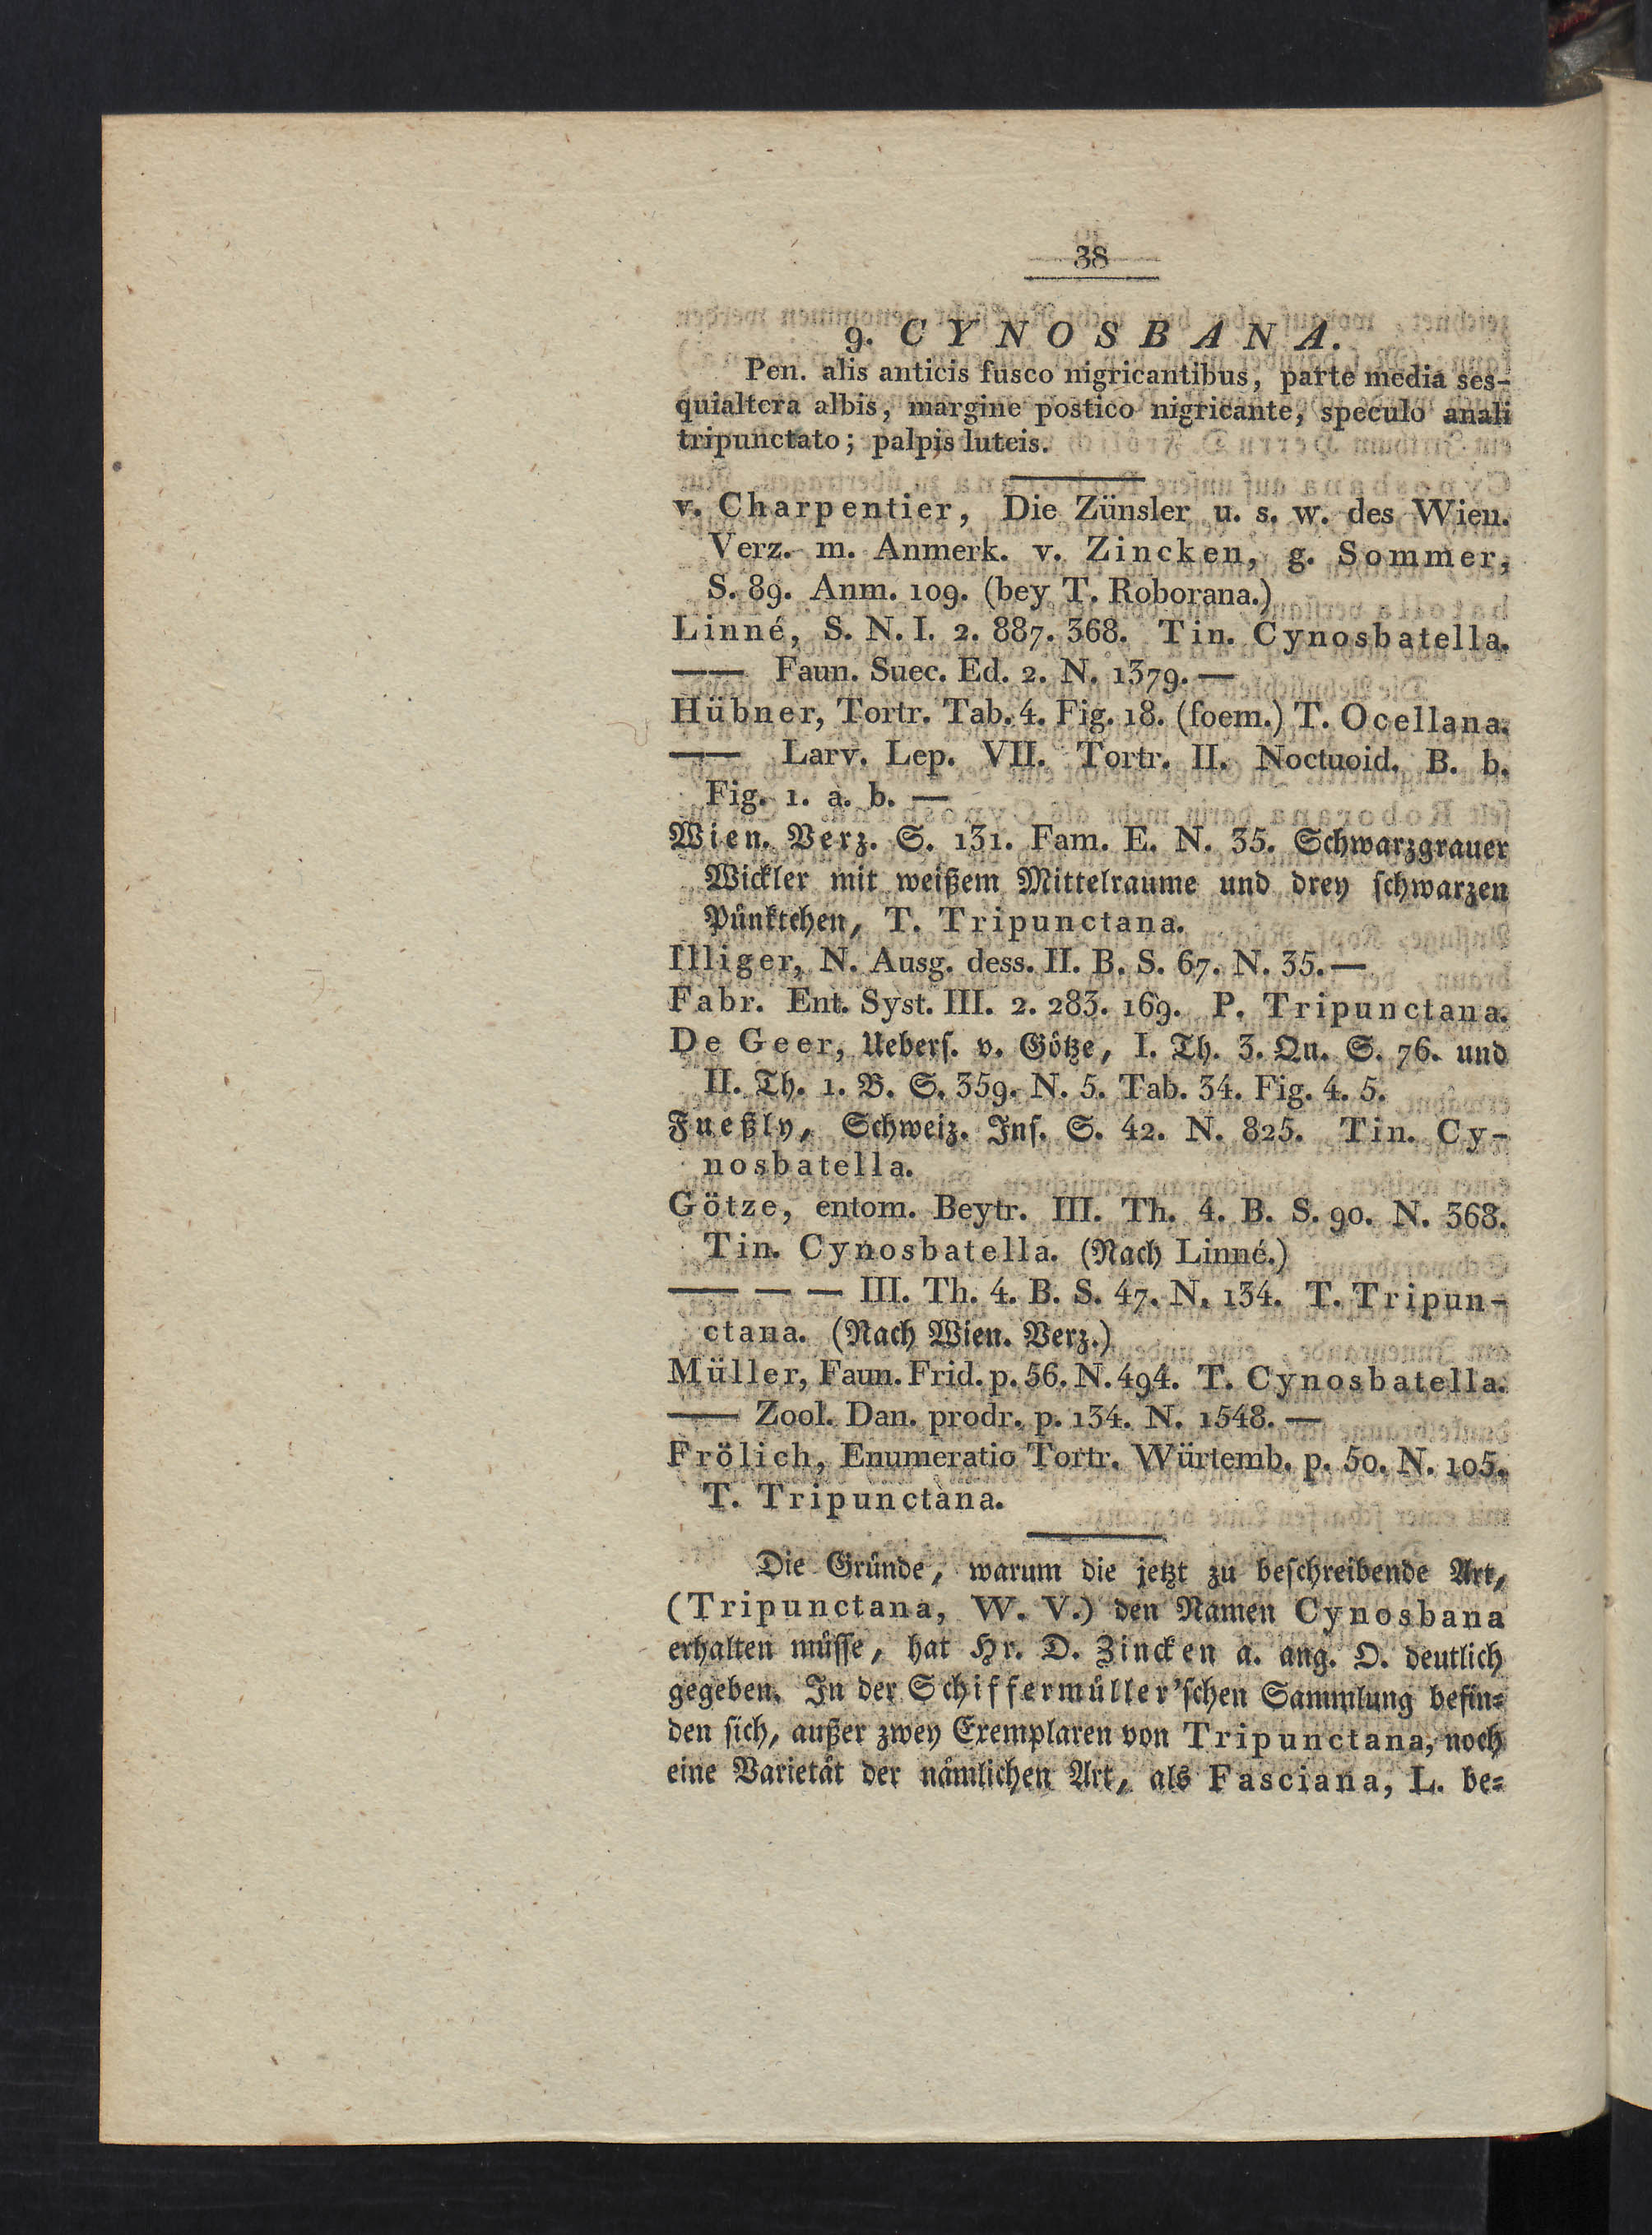 38
9. CYNOSBANA.
Pen. alis anticis fusco nigricantibus, parte media ses-
quialtera albis, margine postico nigricante, speculo anali
tripunctato; palpis luteis.
v. Charpentier, Die Zünsler u. s. w. des Wien.
Verz. m. Anmerk. v. Zincken, g. Sommer,
S. 89. Anm. 109. (bey T. Roborana.)
Linné, S. N. I. 2. 887. 368. Tin. Cynosbatella.
—— Faun. Suec. Ed. 2. N. 1379. —
Hübner, Tortr. Tab. 4. Fig. 18. (foem.) T. Ocellana.
—— Larv. Lep. VII. Tortr. II. Noctuoid. B. b.
Fig. 1. a. b. —
Wien. Verz. S. 131. Fam. E. N. 35. Schwarzgrauer
Wickler mit weißem Mittelraume und drey ſchwarzen
Pünktchen, T. Tripunctana.
Illiger, N. Ausg. dess. II. B. S. 67. N. 35. —
Fabr. Ent. Syst. III. 2. 283. 169. P. Tripunctana.
De Geer, Ueberſ. v. Götze, I. Th. 3. Qu. S. 76. und
II. Th. 1. B. S. 359. N. 5. Tab. 34. Fig. 4. 5.
Fueßly, Schweiz. Inſ. S. 42. N. 825. Tin. Cy-
nosbatella.
Götze, entom. Beytr. III. Th. 4. B. S. 90. N. 368.
Tin. Cynosbatella. (Nach Linné.)
—— — — III. Th. 4. B. S. 47. N. 134. T. Tripun-
ctana. (Nach Wien. Verz.)
Müller, Faun. Frid. p. 56. N. 494. T. Cynosbatella.
—— Zool. Dan. prodr. p. 134. N. 1548. —
Frölich, Enumeratio Tortr. Würtemb. p. 50. N. 105.
T. Tripunctana.
Die Gründe, warum die jetzt zu beſchreibende Art,
(Tripunctana, W. V.) den Namen Cynosbana
erhalten müſſe, hat Hr. D. Zincken a. ang. O. deutlich
gegeben. In der Schiffermüller'ſchen Sammlung befin-
den ſich, außer zwey Exemplaren von Tripunctana, noch
eine Varietät der nämlichen Art, als Fasciana, L. be-